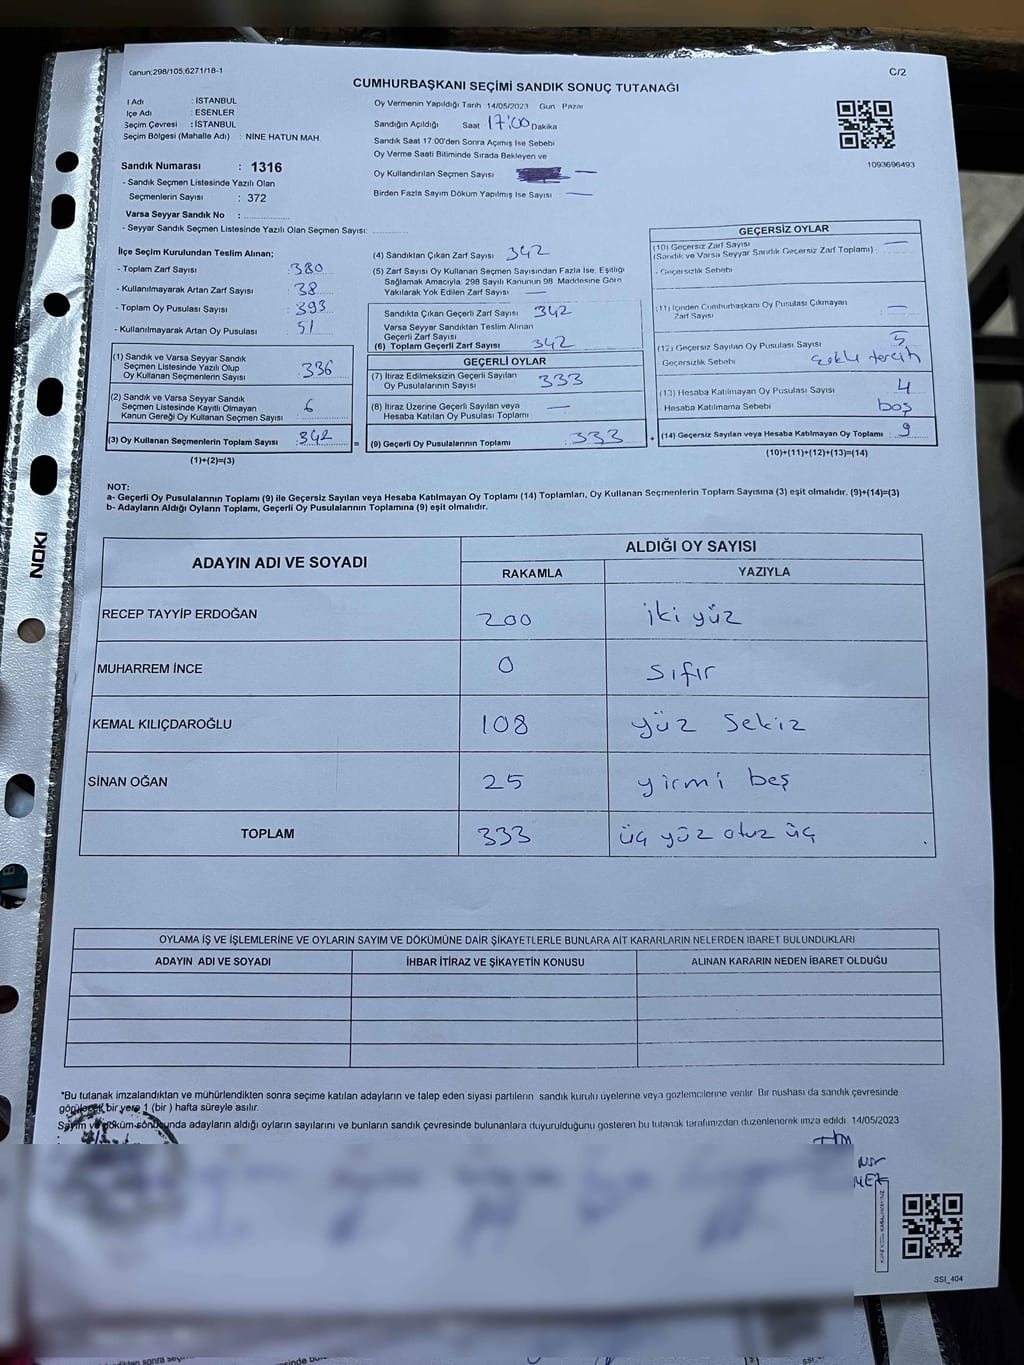 Kanun;298/105;6271/18-1
C/2
CUMHURBAŞKANI SEÇİMİ SANDIK SONUÇ TUTANAĞI
İl Adı : İSTANBUL
İlçe Adı : ESENLER
Seçim Çevresi : İSTANBUL
Seçim Bölgesi (Mahalle Adı) : NİNE HATUN MAH.
Sandık Numarası : 1316
- Sandık Seçmen Listesinde Yazılı Olan
Seçmenlerin Sayısı : 372
Varsa Seyyar Sandık No :
- Seyyar Sandık Seçmen Listesinde Yazılı Olan Seçmen Sayısı:
Oy Vermenin Yapıldığı Tarih 14/05/2023 Gün : Pazar
Sandığın Açıldığı Saat 17:00 Dakika
Sandık Saat 17:00'den Sonra Açılmış İse Sebebi
Oy Verme Saati Bitiminde Sırada Bekleyen ve
Oy Kullandırılan Seçmen Sayısı —
Birden Fazla Sayım Döküm Yapılmış İse Sayısı —
1093696493
İlçe Seçim Kurulundan Teslim Alınan;
- Toplam Zarf Sayısı : 380
- Kullanılmayarak Artan Zarf Sayısı : 38
- Toplam Oy Pusulası Sayısı : 393
- Kullanılmayarak Artan Oy Pusulası : 51
(1) Sandık ve Varsa Seyyar Sandık
Seçmen Listesinde Yazılı Olup
Oy Kullanan Seçmenlerin Sayısı : 336
(2) Sandık ve Varsa Seyyar Sandık
Seçmen Listesinde Kayıtlı Olmayan
Kanun Gereği Oy Kullanan Seçmen Sayısı : 6
(3) Oy Kullanan Seçmenlerin Toplam Sayısı : 342
(1)+(2)=(3)
(4) Sandıktan Çıkan Zarf Sayısı : 342
(5) Zarf Sayısı Oy Kullanan Seçmen Sayısından Fazla İse, Eşitliği
Sağlamak Amacıyla, 298 Sayılı Kanunun 98. Maddesine Göre
Yakılarak Yok Edilen Zarf Sayısı : —
Sandıkta Çıkan Geçerli Zarf Sayısı : 342
Varsa Seyyar Sandıktan Teslim Alınan
Geçerli Zarf Sayısı :
(6) Toplam Geçerli Zarf Sayısı : 342
GEÇERLİ OYLAR
(7) İtiraz Edilmeksizin Geçerli Sayılan
Oy Pusulalarının Sayısı : 333
(8) İtiraz Üzerine Geçerli Sayılan veya
Hesaba Katılan Oy Pusulası Toplamı : —
= (9) Geçerli Oy Pusulalarının Toplamı : 333
GEÇERSİZ OYLAR
(10) Geçersiz Zarf Sayısı : —
(Sandık ve Varsa Seyyar Sandık Geçersiz Zarf Toplamı)
- Geçersizlik Sebebi
(11) İçinden Cumhurbaşkanı Oy Pusulası Çıkmayan
Zarf Sayısı : —
(12) Geçersiz Sayılan Oy Pusulası Sayısı : 5
Geçersizlik Sebebi : çoklu tercih
(13) Hesaba Katılmayan Oy Pusulası Sayısı : 4
Hesaba Katılmama Sebebi : boş
+ (14) Geçersiz Sayılan veya Hesaba Katılmayan Oy Toplamı : 9
(10)+(11)+(12)+(13)=(14)
NOT:
a- Geçerli Oy Pusulalarının Toplamı (9) ile Geçersiz Sayılan veya Hesaba Katılmayan Oy Toplamı (14) Toplamları, Oy Kullanan Seçmenlerin Toplam Sayısına (3) eşit olmalıdır. (9)+(14)=(3)
b- Adayların Aldığı Oyların Toplamı, Geçerli Oy Pusulalarının Toplamına (9) eşit olmalıdır.
ADAYIN ADI VE SOYADI
ALDIĞI OY SAYISI
RAKAMLA YAZIYLA
RECEP TAYYİP ERDOĞAN 200 iki yüz
MUHARREM İNCE 0 sıfır
KEMAL KILIÇDAROĞLU 108 yüz sekiz
SİNAN OĞAN 25 yirmi beş
TOPLAM 333 üç yüz otuz üç
OYLAMA İŞ VE İŞLEMLERİNE VE OYLARIN SAYIM VE DÖKÜMÜNE DAİR ŞİKAYETLERLE BUNLARA AİT KARARLARIN NELERDEN İBARET BULUNDUKLARI
ADAYIN ADI VE SOYADI İHBAR İTİRAZ VE ŞİKAYETİN KONUSU ALINAN KARARIN NEDEN İBARET OLDUĞU
*Bu tutanak imzalandıktan ve mühürlendikten sonra seçime katılan adayların ve talep eden siyasi partilerin sandık kurulu üyelerine veya gözlemcilerine verilir. Bir nüshası da sandık çevresinde
görülecek bir yere 1 (bir) hafta süreyle asılır.
Sayım ve döküm sonucunda adayların aldığı oyların sayılarını ve bunların sandık çevresinde bulunanlara duyurulduğunu gösteren bu tutanak tarafımızdan düzenlenerek imza edildi. 14/05/2023
SSİ_404
NOKI